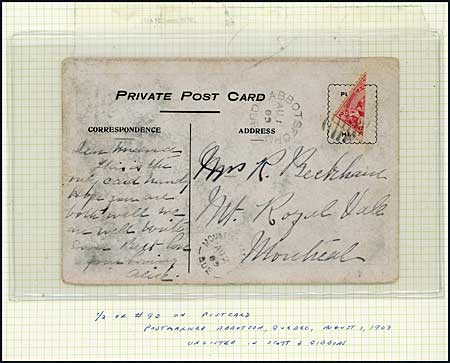 PRIVATE POST CARD
CORRESPONDENCE
ADDRESS
ABBOTSFORD
AU 1
09
QUE
PL
HE
Dear
This is the
only card handy
hope you are
both well we
are well write
soon Best love
your loving
Alice.
Mrs R. Beckham
Mt. Royal Vale
Montreal
MOUNT
AU 2
09
QUE
1/2 OF #90 ON POSTCARD
POSTMARKED ABBOTSON, QUEBEC, AUGUST 1, 1909
UNLISTED IN SCOTT & GIBBONS